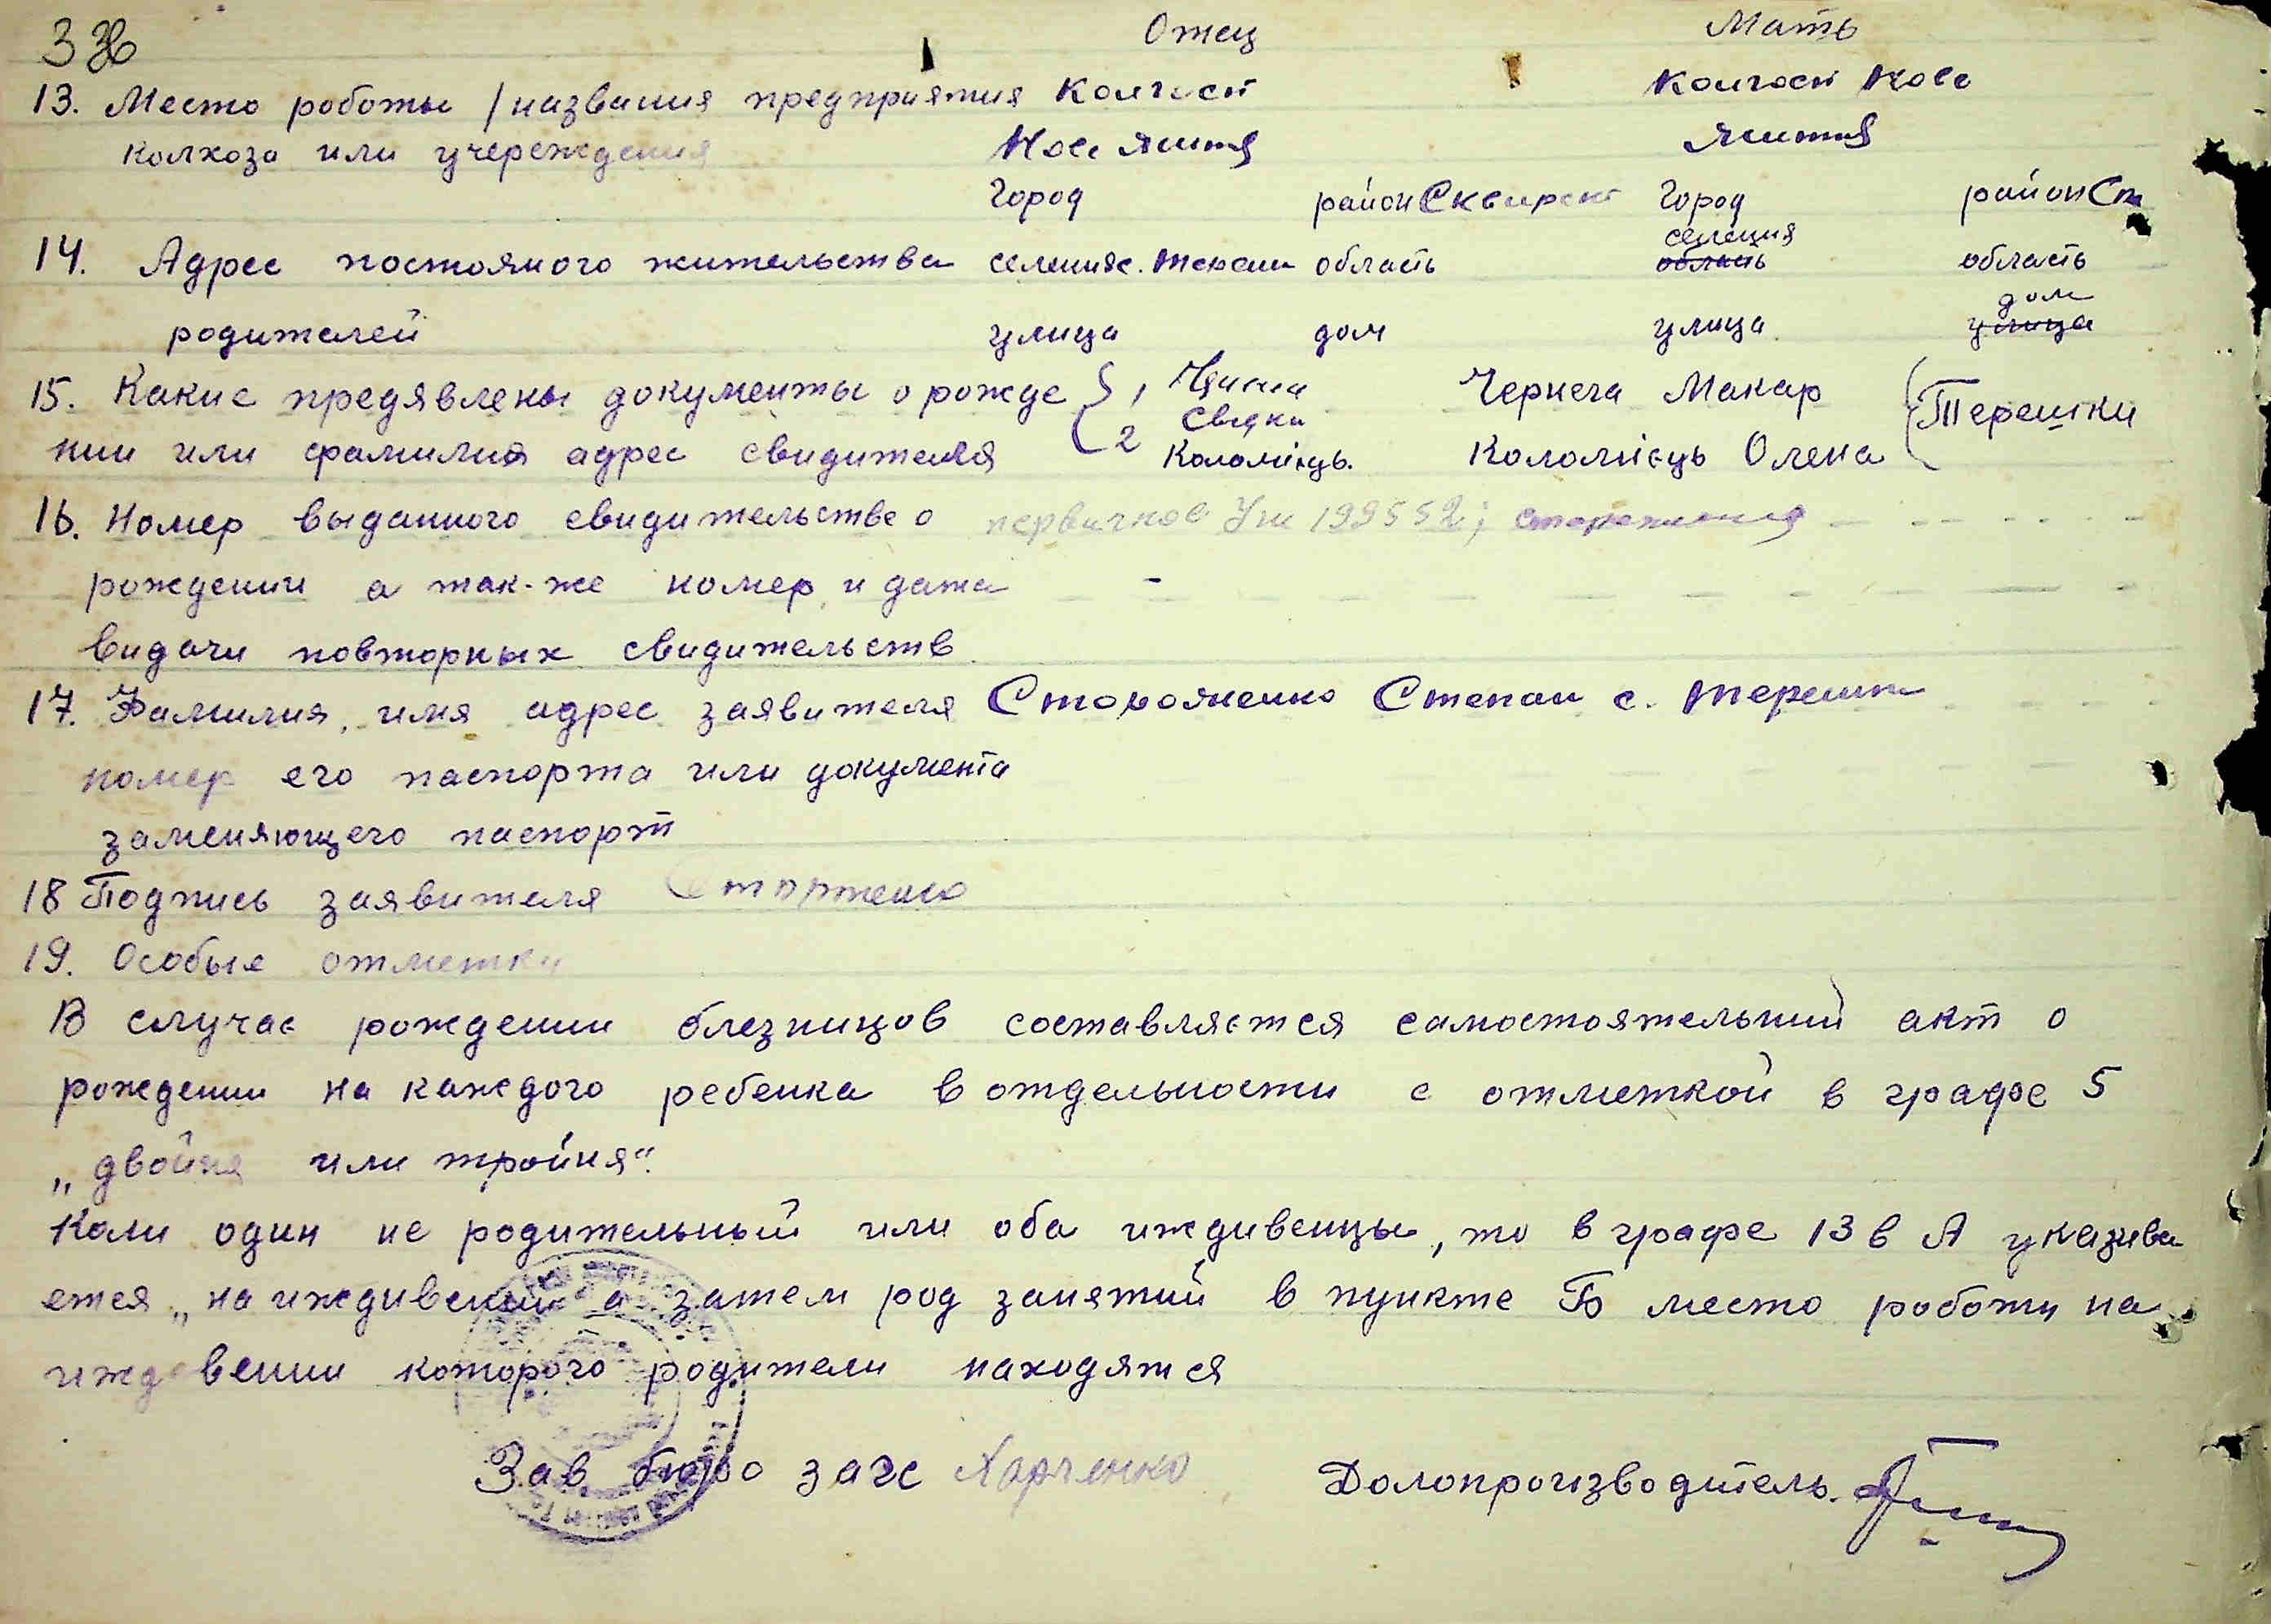 Отец Мать
13. Место роботы / названия предприятия Колгосп Колгосп Нове
колхоза или учереждения Нове життя життя
Город район Сквирськ Город район Ск
селения
14. Адрес постояного жительства селения с. Терешки область ~~область~~ область
дом
родителей улица дом улица ~~улица~~
15. Какие предявлены документы о рожде { 1 Чернега Макар { Терешки
Свідки
нии или фамилия адрес свидителя 2 Коломієць. Коломієць Олена
16. Номер выданного свидительстве о первичное 199552;
рождении а так-же номер и дата -
видачи повторных свидительств
17. Фамилия, имя адрес заявителя Степан с. Терешки
номер его паспорта или документа
заменяющего паспорт
18 Подпись заявителя
19. Особые отметки
В случае рождении близницов составляется самостоятельний акт о
рождении на каждого ребенка в отдельности с отметкой в графе 5
„двойня или тройня“.
Коли один не родительный или оба иждивенцы, то в графе 13 в А указива
ется „на иждивении а затем род занятий в пункте Б место роботы на
иждевении которого родители находятся
Зав бюро загс Харченко Долопроизводитель.